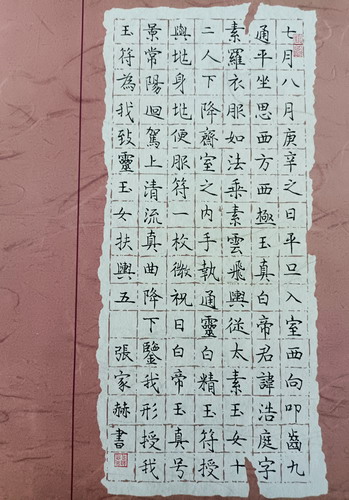 七月八月庚辛之日平旦入室西向叩齒九
通平坐思西方西極玉真白帝君諱浩庭字
素羅衣服如法乘素雲飛輿從太素玉女十
二人下降齋室之内手執通靈白精玉符授
與地身地便服符一枚微祝曰白帝玉真号
景常陽迴駕上清流真曲降下鑒我形授我
玉符為我致靈玉女扶輿五
張家赫書